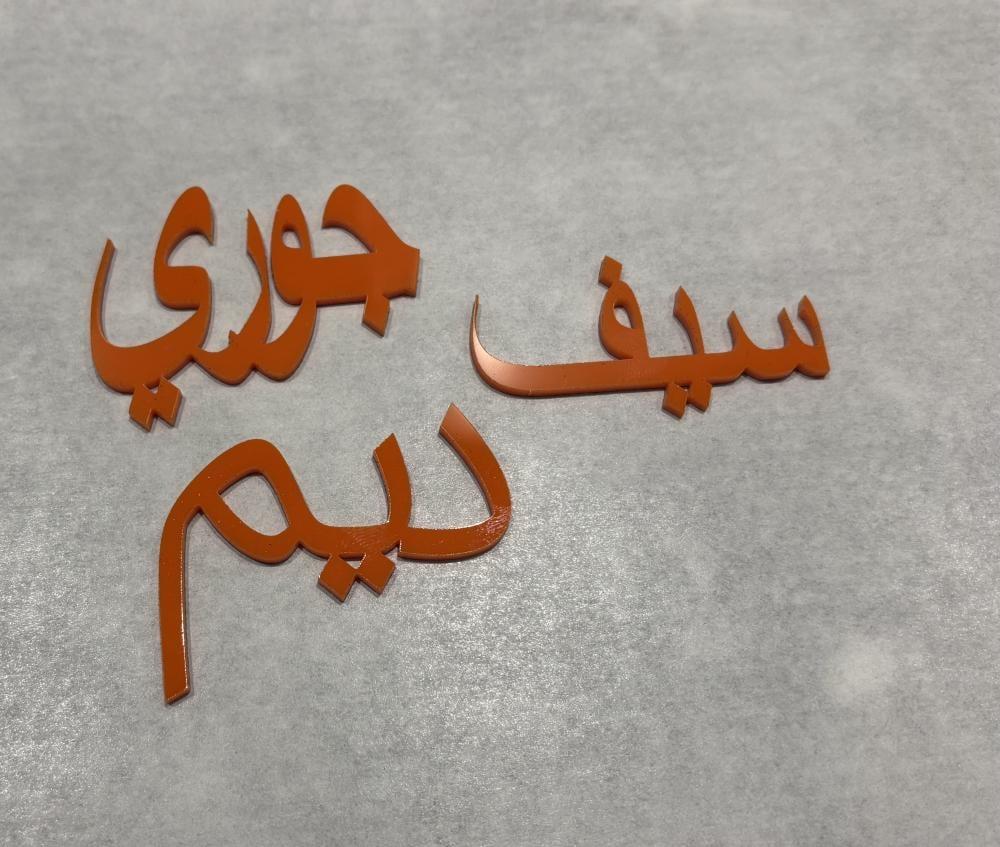 جوري
سيف
ريم